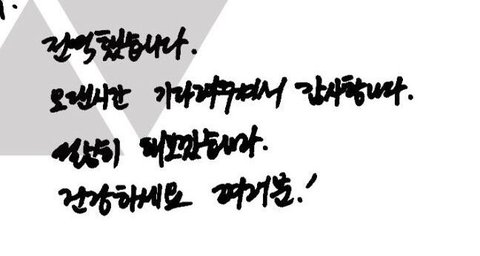 전역했습니다.
오랜시간 기다려주셔서 감사합니다.
열심히 해보겠습니다.
건강하세요 여러분!